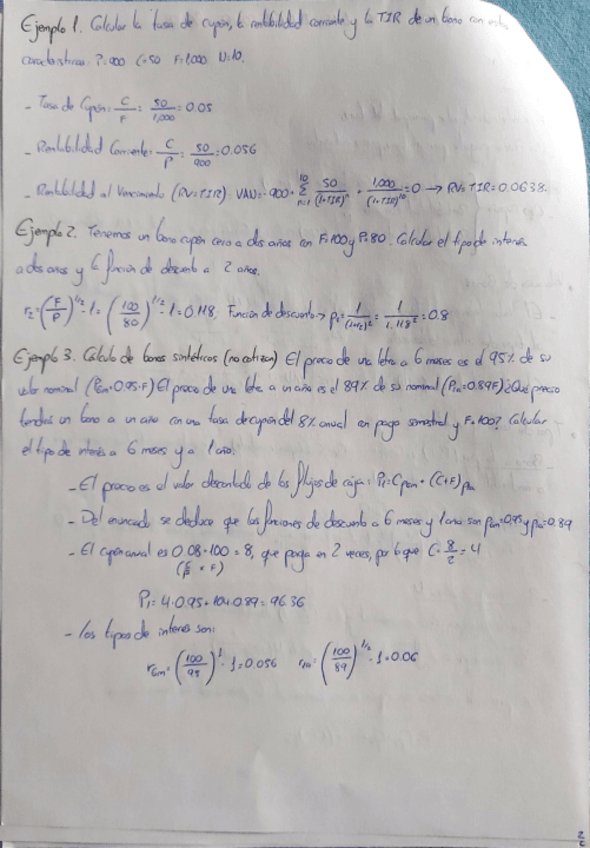 Ejemplo 1. Calcular la tasa de cupón, la rentabilidad corriente y la TIR de un bono con estas
características: P=900 C=50 F=1,000 N=10.
- Tasa de Cupón: C/F = 50/1,000 = 0.05
- Rentabilidad Corriente: C/P = 50/900 = 0.056
- Rentabilidad al Vencimiento (RV=TIR): VAN = -900 + Σ_{n=1}^{10} 50/(1+TIR)^n + 1,000/(1+TIR)^10 = 0 → RV=TIR=0.0638.
Ejemplo 2. Tenemos un bono cupón cero a dos años con F=100 y P=80. Calcular el tipo de interés
a dos años y la función de descuento a 2 años.
r₂ = (F/P)^{1/2} - 1 = (100/80)^{1/2} - 1 = 0.118. Función de descuento → p₂ = 1/(1+r₂)² = 1/1.118² = 0.8
Ejemplo 3. Cálculo de bonos sintéticos (no cotizan) El precio de una letra a 6 meses es el 95% de su
valor nominal (P6m=0.95·F) El precio de una letra a un año es el 89% de su nominal (P1a=0.89F) ¿Qué precio
tendrá un bono a un año con una tasa de cupón del 8% anual con pago semestral y F=100? Calcular
el tipo de interés a 6 meses y a 1 año.
- El precio es el valor descontado de los flujos de caja: P₁ = C p6m + (C+F) p1a
- Del enunciado se deduce que las funciones de descuento a 6 meses y 1 año son p6m=0.95 y p1a=0.89
- El cupón anual es 0.08·100 = 8, que paga en 2 veces, por lo que C = 8/2 = 4
(C/F × F)
P₁ = 4·0.95 + 104·0.89 = 96.36
- Los tipos de interés son:
r6m = (100/95)^1 - 1 = 0.056 r1a = (100/89)^{1/2} - 1 = 0.06